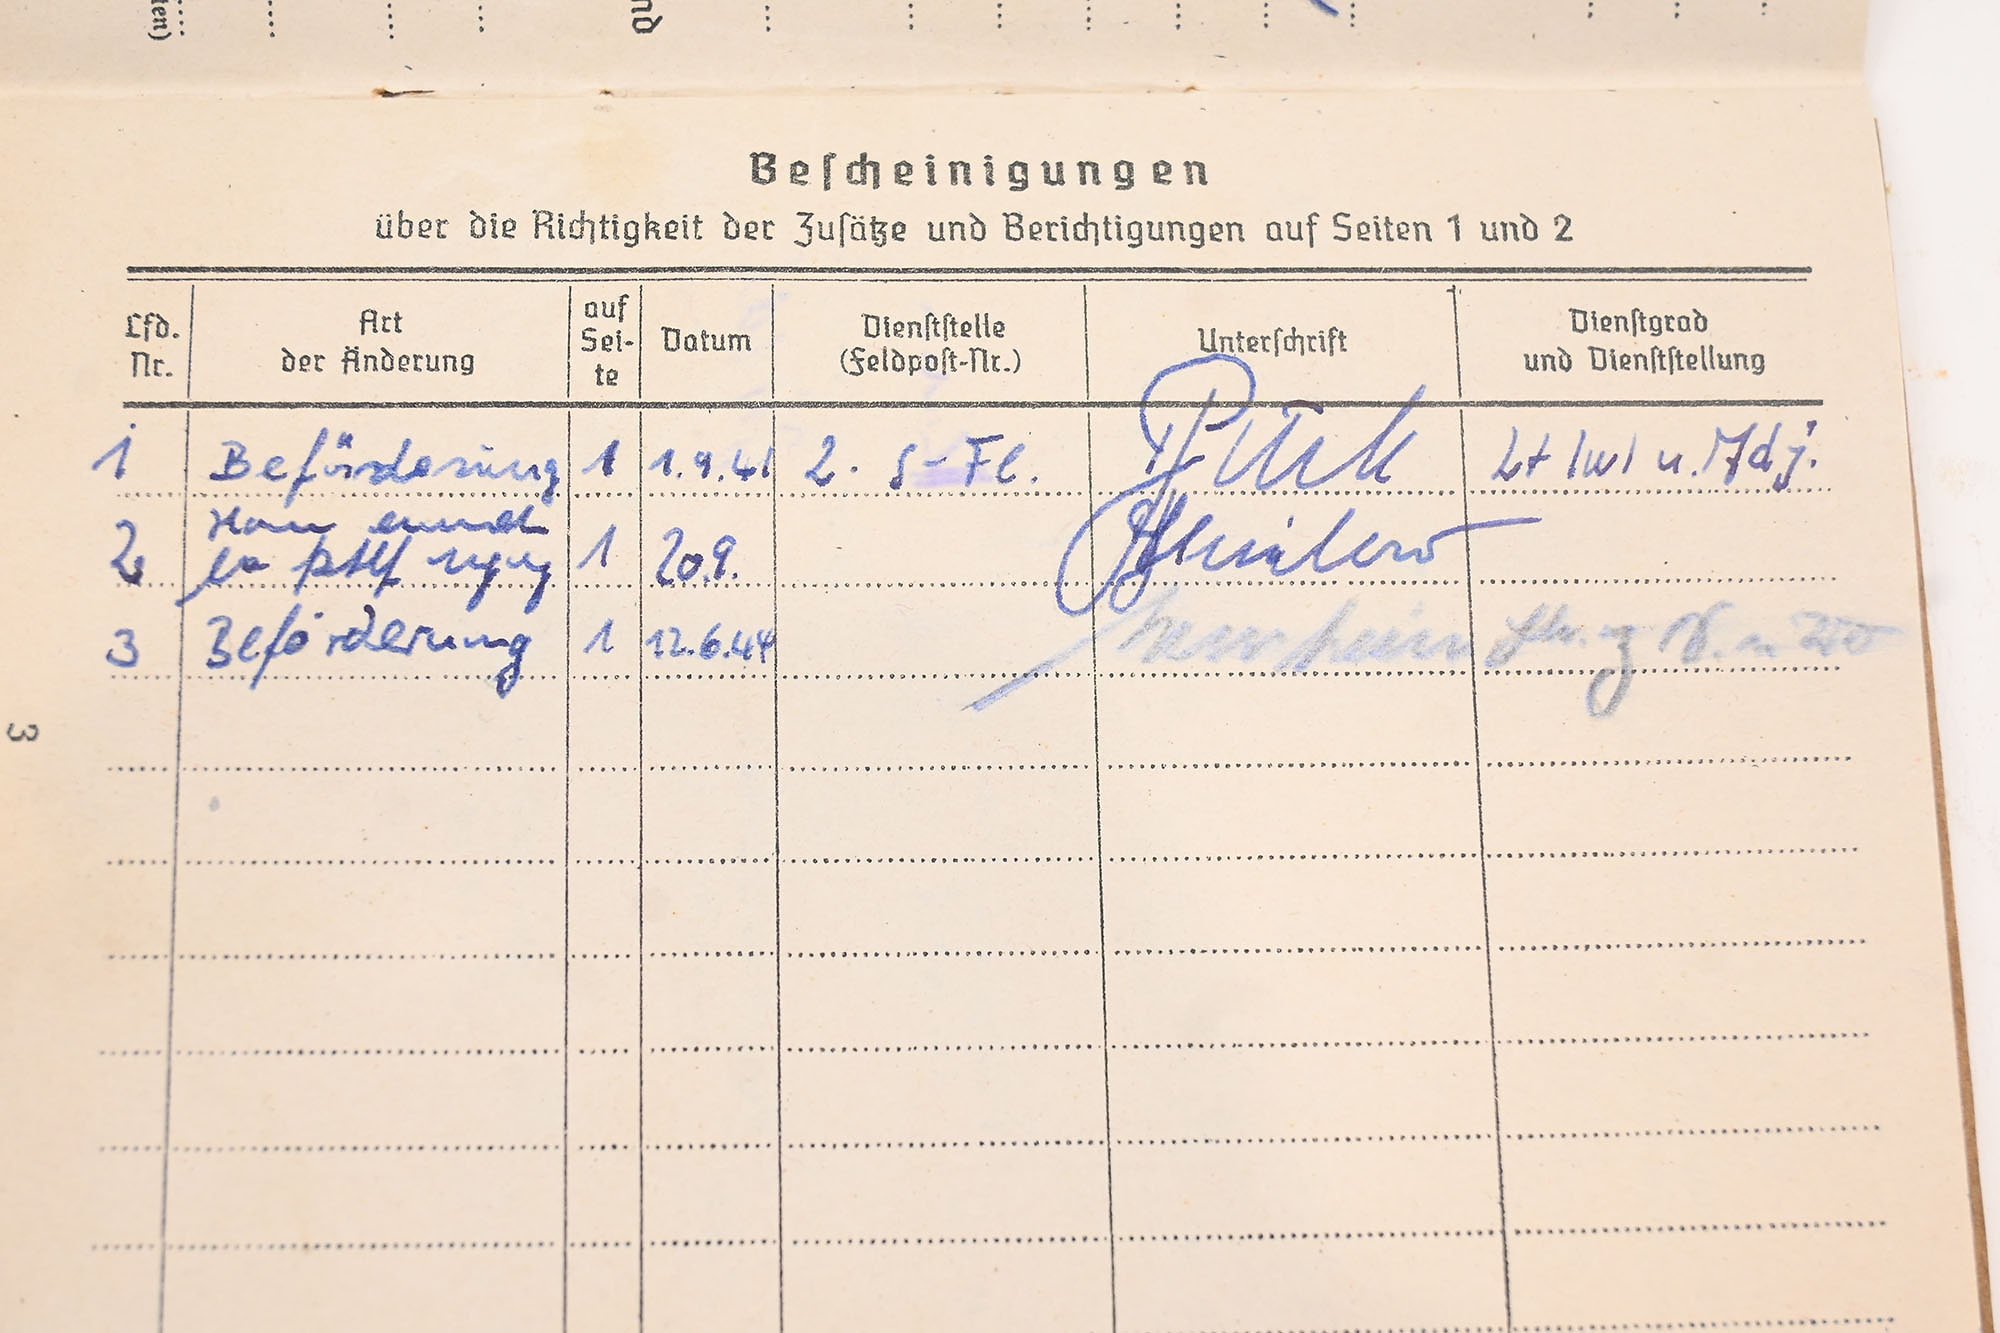 ten)
nd
Bescheinigungen
über die Richtigkeit der Zusätze und Berichtigungen auf Seiten 1 und 2
Lfd. Nr.
Art der Änderung
auf Sei-te
Datum
Dienststelle (Feldpost-Nr.)
Unterschrift
Dienstgrad und Dienststellung
1 Beförderung 1 1.9.41 2. Fl. Lt u. Adj.
2 1 20.9.
3 Beförderung 1 12.6.44
3